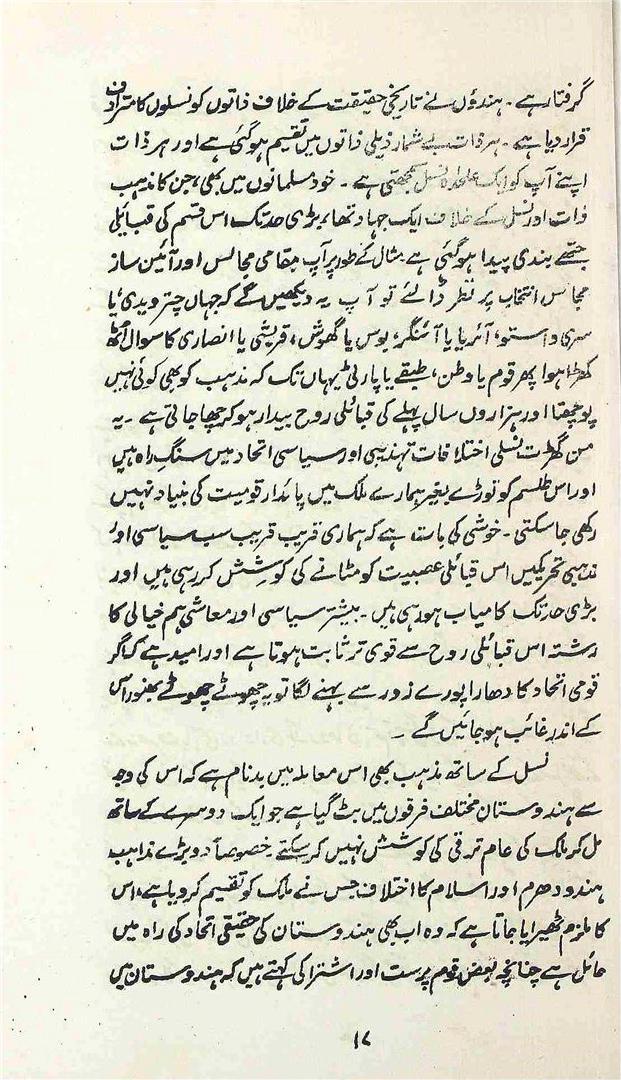 گرفتار ہے ۔ ہندوؤں نے تاریخی حقیقت کے خلاف ذاتوں کو نسلوں کا مترادف
قرار دیا ہے ۔ ہر ذات بے شمار ذیلی ذاتوں میں تقسیم ہو گئی ہے اور ہر ذات
اپنے آپ کو ایک علٰحدہ نسل سمجھتی ہے ۔ خود مسلمانوں میں بھی، جن کا مذہب
ذات اور نسل کے خلاف ایک جہاد تھا، بڑی حد تک اس قسم کی قبائلی
جتھے بندی پیدا ہو گئی ہے مثال کے طور پر آپ مقامی مجالس اور آئین ساز
مجالس انتخاب پر نظر ڈالئے تو آپ یہ دیکھیں گے کہ جہاں چترویدی، یا
سری واستو، آئریا یا آئنگر، بوس یا گھوش، قریشی یا انصاری کا سوال اٹھ
کھڑا ہوا پھر قوم یا وطن، طبقے یا پارٹی یہاں تک کہ مذہب کو بھی کوئی نہیں
پوچھتا اور ہزاروں سال پہلے کی قبائلی روح بیدار ہو کر چھا جاتی ہے ۔ یہ
من گھڑت نسلی اختلافات تہذیبی اور سیاسی اتحاد میں سنگِ راہ ہیں
اور اس طلسم کو توڑے بغیر ہمارے ملک میں پائدار قومیت کی بنیاد نہیں
رکھی جا سکتی ۔ خوشی کی بات ہے کہ ہماری قریب قریب سب سیاسی اور
مذہبی تحریکیں اس قبائلی عصبیت کو مٹانے کی کوشش کر رہی ہیں اور
بڑی حد تک کامیاب ہو رہی ہیں ۔ بیشتر سیاسی اور معاشی ہم خیالی کا
رشتہ اس قبائلی روح سے قوی تر ثابت ہوتا ہے اور امید ہے کہ اگر
قومی اتحاد کا دھارا پورے زور سے بہنے لگا تو یہ چھوٹے چھوٹے بھنور اس
کے اندر غائب ہو جائیں گے ۔
نسل کے ساتھ مذہب بھی اس معاملہ میں بدنام ہے کہ اس کی وجہ
سے ہندوستان مختلف فرقوں میں بٹ گیا ہے جو ایک دوسرے کے ساتھ
مل کر ملک کی عام ترقی کی کوشش نہیں کر سکتے ۔ خصوصاً دو بڑے مذاہب
ہندو دھرم اور اسلام کا اختلاف جس نے ملک کو تقسیم کر دیا ہے، اس
کا ملزم ٹھیرایا جاتا ہے کہ وہ اب بھی ہندوستان کی حقیقی اتحاد کی راہ میں
حائل ہے چنانچہ بعض قوم پرست اور اشتراکی کہتے ہیں کہ ہندوستان میں
۱۷